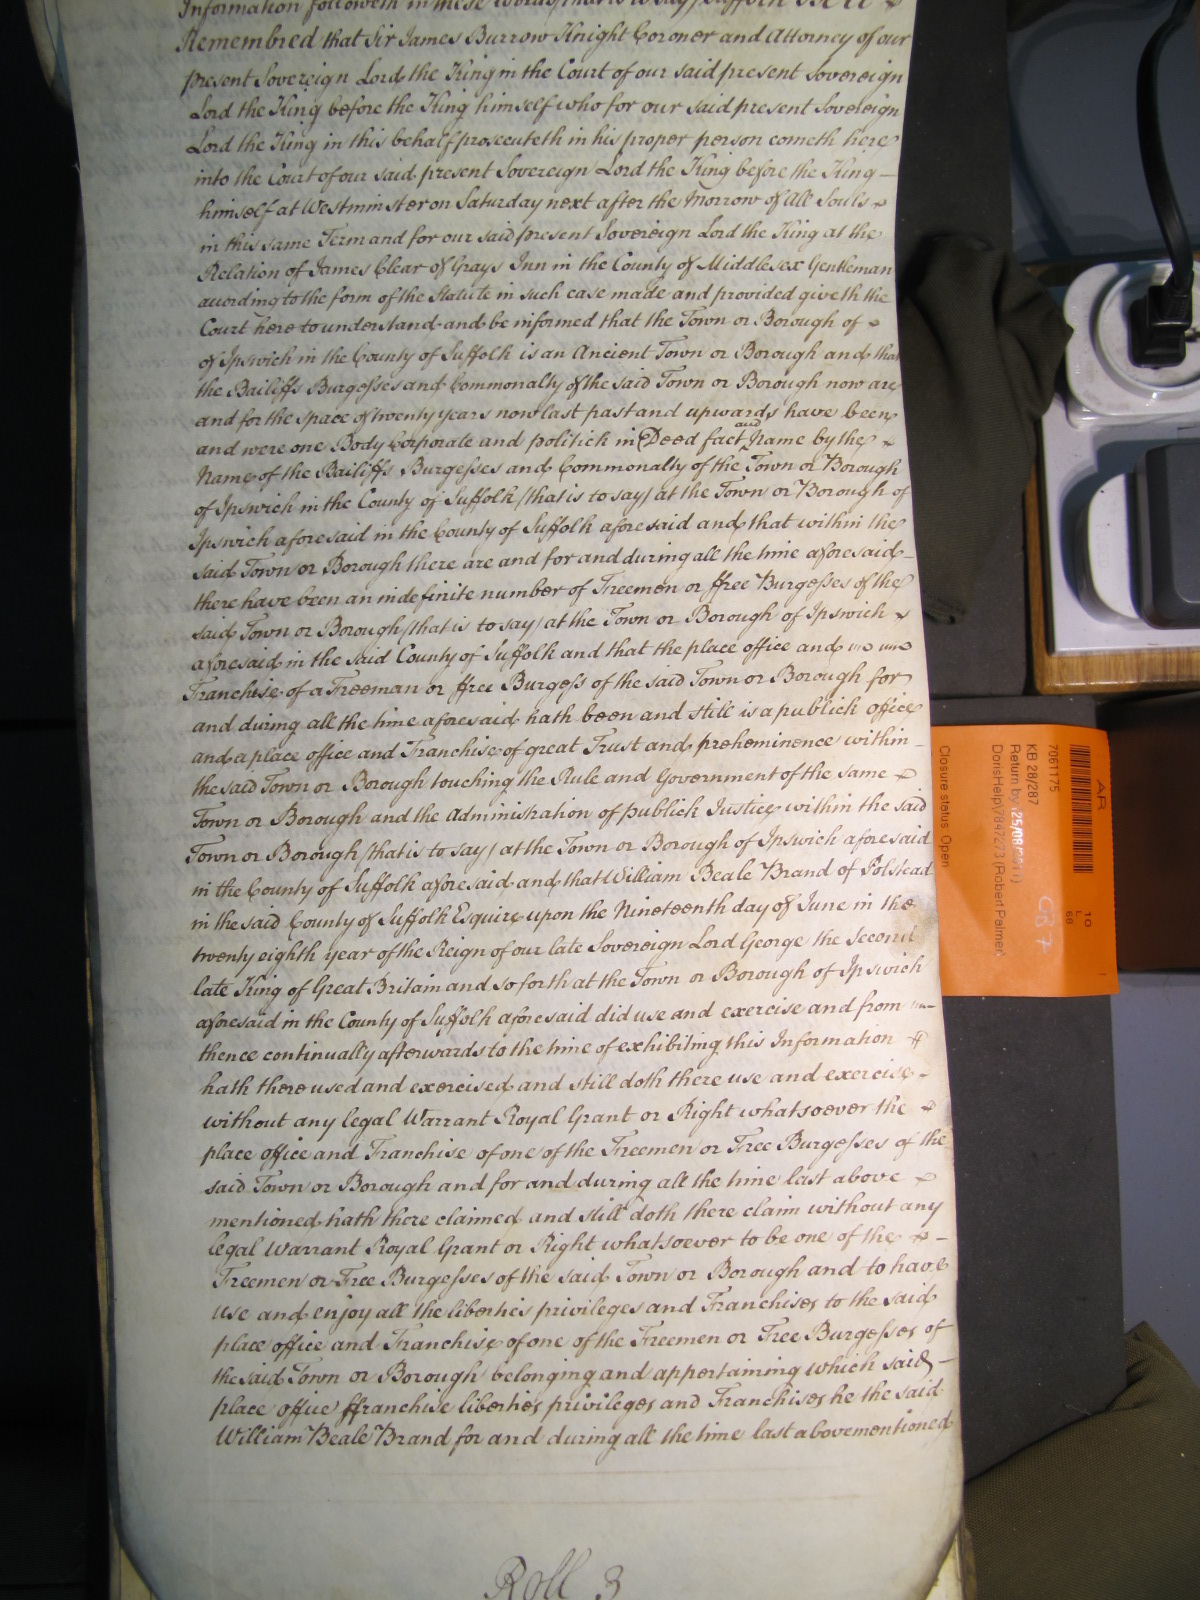 Information followeth in these words that is to say Suffolk Be it
Remembred that Sir James Burrow Knight Coroner and Attorney of our
present Sovereign Lord the King in the Court of our said present Sovereign
Lord the King before the King himself who for our said present Sovereign
Lord the King in this behalf prosecuteth in his proper person cometh here
into the Court of our said present Sovereign Lord the King before the King
himself at Westminster on Saturday next after the Morrow of All Souls
in this same Term and for our said present Sovereign Lord the King at the
Relation of James Clear of Grays Inn in the County of Middlesex Gentleman
according to the form of the Statute in such case made and provided giveth the
Court here to understand and be informed that the Town or Borough of
of Ipswich in the County of Suffolk is an Ancient Town or Borough and that
the Bailiffs Burgesses and Commonalty of the said Town or Borough now are
and for the space of twenty years now last past and upwards have been
and were one Body Corporate and politick in Deed fact and Name by the
Name of the Bailiffs Burgesses and Commonalty of the Town or Borough
of Ipswich in the County of Suffolk /that is to say/ at the Town or Borough of
Ipswich aforesaid in the County of Suffolk aforesaid and that within the
said Town or Borough there are and for and during all the time aforesaid
there have been an indefinite number of Freemen or ffree Burgesses of the
said Town or Borough /that is to say/ at the Town or Borough of Ipswich
aforesaid in the said County of Suffolk and that the place office and
Franchise of a Freeman or ffree Burgess of the said Town or Borough for
and during all the time aforesaid hath been and still is a publick office
and a place office and Franchise of great Trust and preheminence within
the said Town or Borough touching the Rule and Government of the same
Town or Borough and the Administration of publick Justice within the said
Town or Borough /that is to say/ at the Town or Borough of Ipswich aforesaid
in the County of Suffolk aforesaid and that William Beale Brand of Polstead
in the said County of Suffolk Esquire upon the Nineteenth day of June in the
twenty eighth year of the Reign of our late Sovereign Lord George the Second
late King of Great Britain and so forth at the Town or Borough of Ipswich
aforesaid in the County of Suffolk aforesaid did use and exercise and from
thence continually afterwards to the time of exhibiting this Information
hath there used and exercised and still doth there use and exercise
without any legal Warrant Royal Grant or Right whatsoever the
place office and Franchise of one of the Freemen or Free Burgesses of the
said Town or Borough and for and during all the time last above
mentioned hath there claimed and still doth there claim without any
legal Warrant Royal Grant or Right whatsoever to be one of the
Freemen or Free Burgesses of the said Town or Borough and to have
use and enjoy all the liberties privileges and Franchises to the said
place office and Franchise of one of the Freemen or Free Burgesses of
the said Town or Borough belonging and appertaining which said
place office ffranchise liberties privileges and Franchises he the said
William Beale Brand for and during all the time last abovementioned
Roll 3
AR
7061175
KB 28/287
Return by (25/08/2011)
DorisHelp7847273 (Robert Palmer)
Closure status: Open
10
L
68
C87